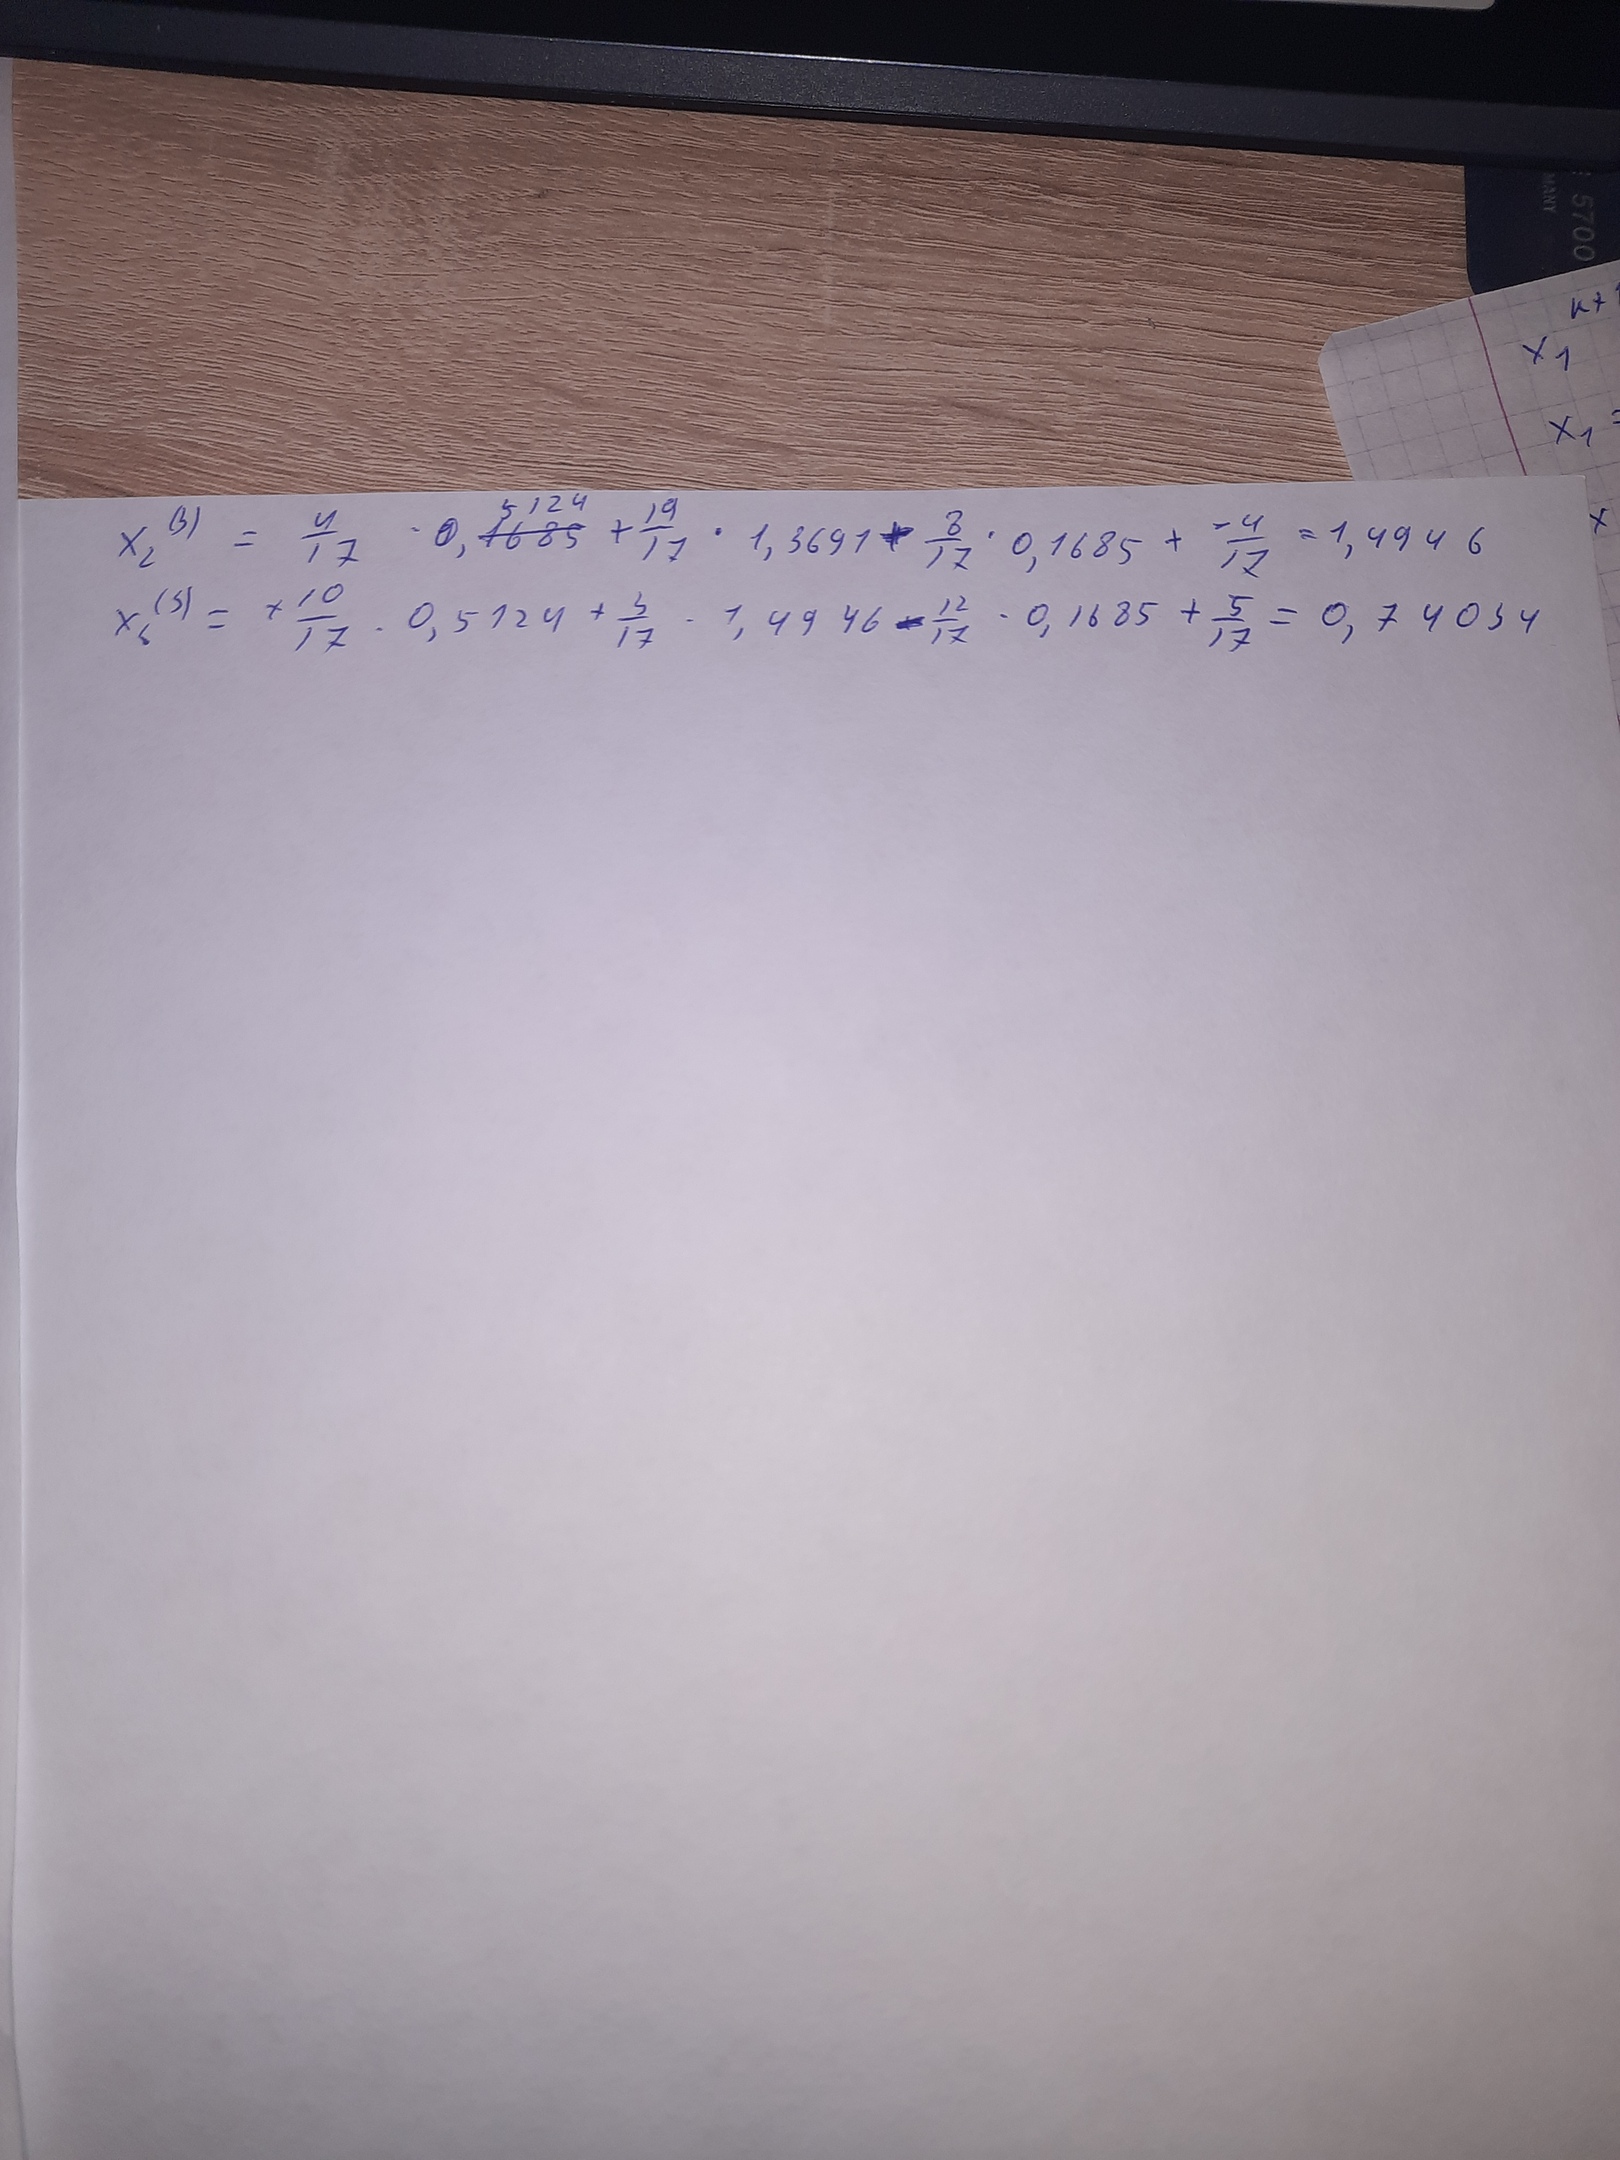 5700
MANY
x₁
x₁ =
x
x₂⁽³⁾ = 4/17 · 0,5124 + 19/17 · 1,3691 + 8/17 · 0,1685 + -4/17 = 1,4946
x₃⁽³⁾ = + 10/17 · 0,5124 + 3/17 · 1,4946 - 12/17 · 0,1685 + 5/17 = 0,74034